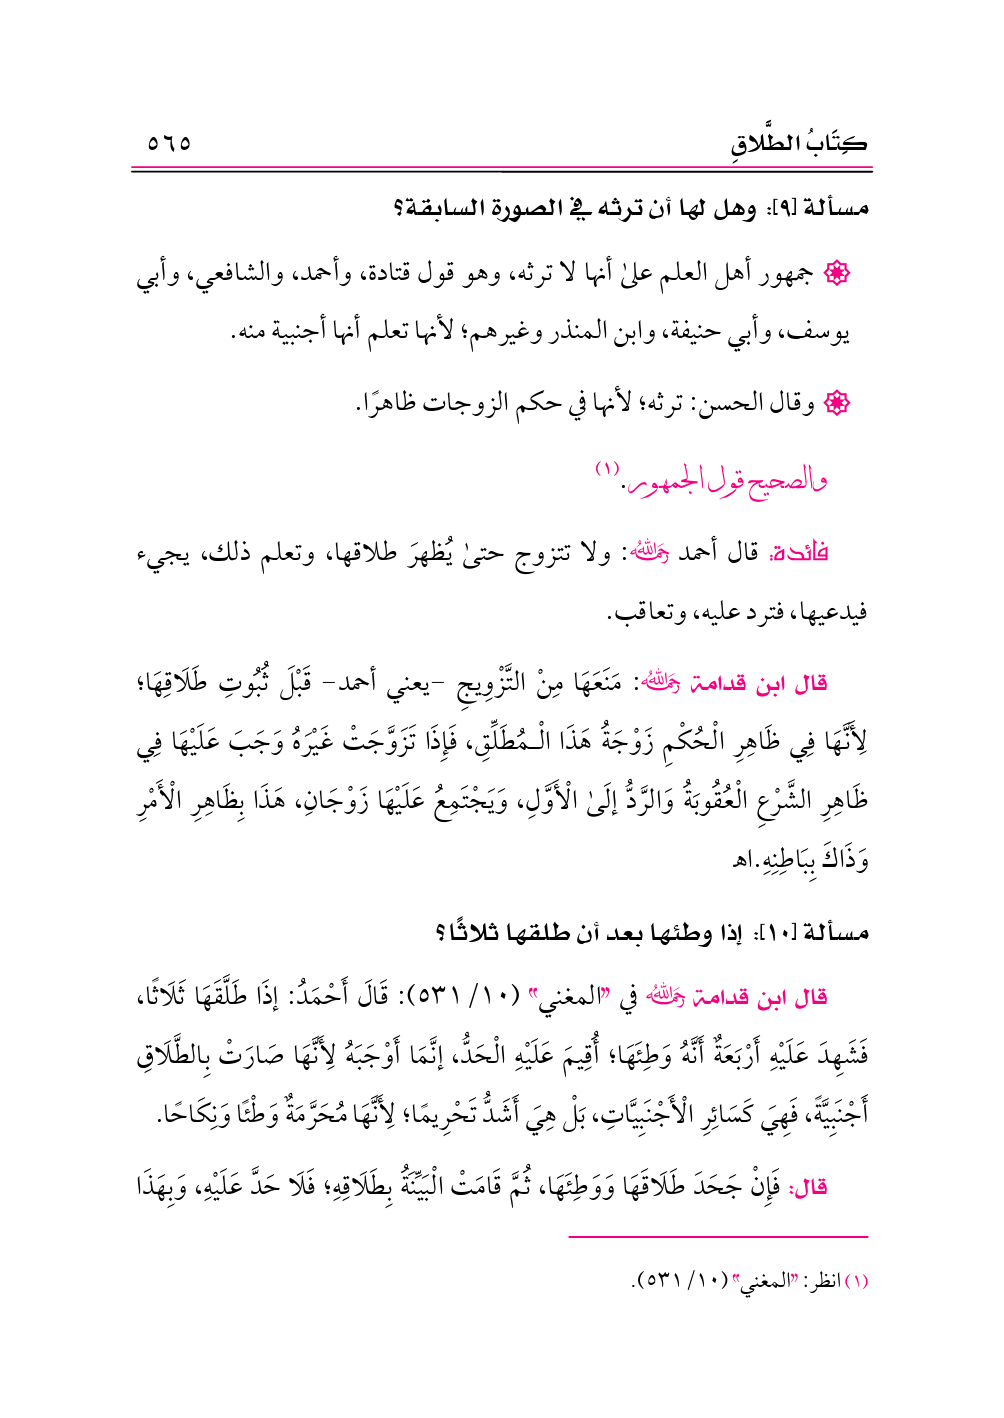 كِتَابُ الطَّلاقِ ٥٦٥
مسألة [٩]: وهل لها أن ترثه في الصورة السابقة؟
جمهور أهل العلم علىٰ أنها لا ترثه، وهو قول قتادة، وأحمد، والشافعي، وأبي
يوسف، وأبي حنيفة، وابن المنذر وغيرهم؛ لأنها تعلم أنها أجنبية منه.
وقال الحسن: ترثه؛ لأنها في حكم الزوجات ظاهرًا.
والصحيح قول الجمهور.(١)
فائدة: قال أحمد رحمه الله: ولا تتزوج حتىٰ يُظهرَ طلاقها، وتعلم ذلك، يجيء
فيدعيها، فترد عليه، وتعاقب.
قال ابن قدامة رحمه الله: مَنَعَهَا مِنْ التَّزْوِيجِ -يعني أحمد- قَبْلَ ثُبُوتِ طَلَاقِهَا؛
لِأَنَّهَا فِي ظَاهِرِ الْحُكْمِ زَوْجَةُ هَذَا الْـمُطَلِّقِ، فَإِذَا تَزَوَّجَتْ غَيْرَهُ وَجَبَ عَلَيْهَا فِي
ظَاهِرِ الشَّرْعِ الْعُقُوبَةُ وَالرَّدُّ إلَىٰ الْأَوَّلِ، وَيَجْتَمِعُ عَلَيْهَا زَوْجَانِ، هَذَا بِظَاهِرِ الْأَمْرِ
وَذَاكَ بِبَاطِنِهِ.اهـ
مسألة [١٠]: إذا وطئها بعد أن طلقها ثلاثًا؟
قال ابن قدامة رحمه الله في "المغني" (١٠/ ٥٣١): قَالَ أَحْمَدُ: إذَا طَلَّقَهَا ثَلَاثًا،
فَشَهِدَ عَلَيْهِ أَرْبَعَةٌ أَنَّهُ وَطِئَهَا؛ أُقِيمَ عَلَيْهِ الْحَدُّ، إنَّمَا أَوْجَبَهُ لِأَنَّهَا صَارَتْ بِالطَّلَاقِ
أَجْنَبِيَّةً، فَهِيَ كَسَائِرِ الْأَجْنَبِيَّاتِ، بَلْ هِيَ أَشَدُّ تَحْرِيمًا؛ لِأَنَّهَا مُحَرَّمَةٌ وَطْئًا وَنِكَاحًا.
قال: فَإِنْ جَحَدَ طَلَاقَهَا وَوَطِئَهَا، ثُمَّ قَامَتْ الْبَيِّنَةُ بِطَلَاقِهِ؛ فَلَا حَدَّ عَلَيْهِ، وَبِهَذَا
(١) انظر: "المغني" (١٠/ ٥٣١).